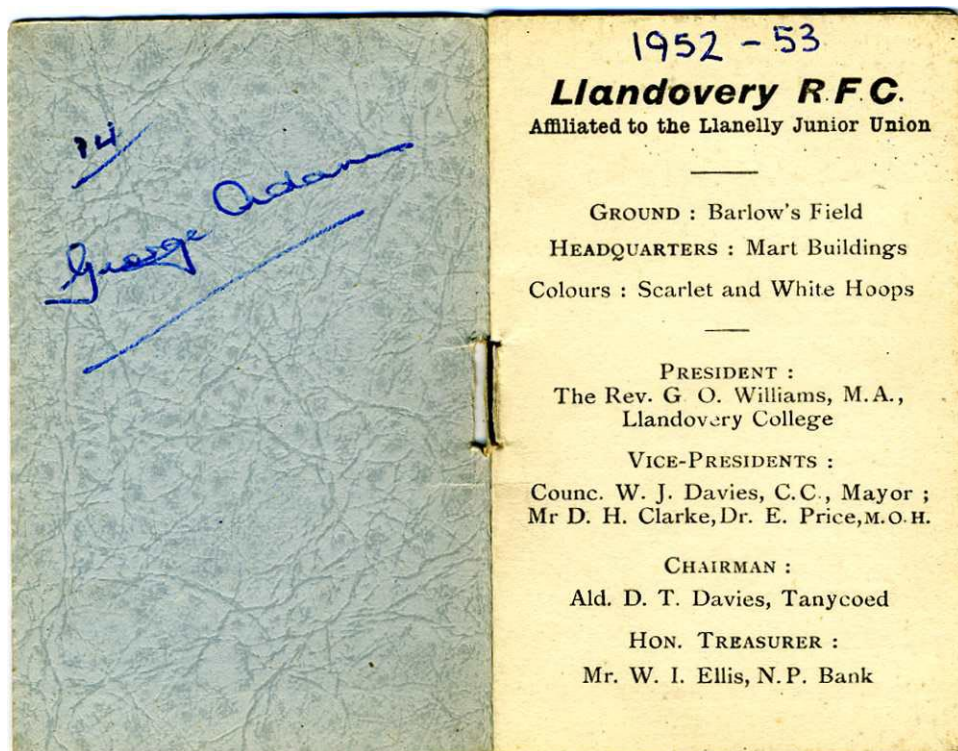 14
George Adam
1952 - 53
Llandovery R.F.C.
Affiliated to the Llanelly Junior Union
GROUND : Barlow's Field
HEADQUARTERS : Mart Buildings
Colours : Scarlet and White Hoops
PRESIDENT :
The Rev. G O. Williams, M.A.,
Llandovery College
VICE-PRESIDENTS :
Counc. W. J. Davies, C.C., Mayor ;
Mr D. H. Clarke, Dr. E. Price, M.O.H.
CHAIRMAN :
Ald. D. T. Davies, Tanycoed
HON. TREASURER :
Mr. W. I. Ellis, N.P. Bank